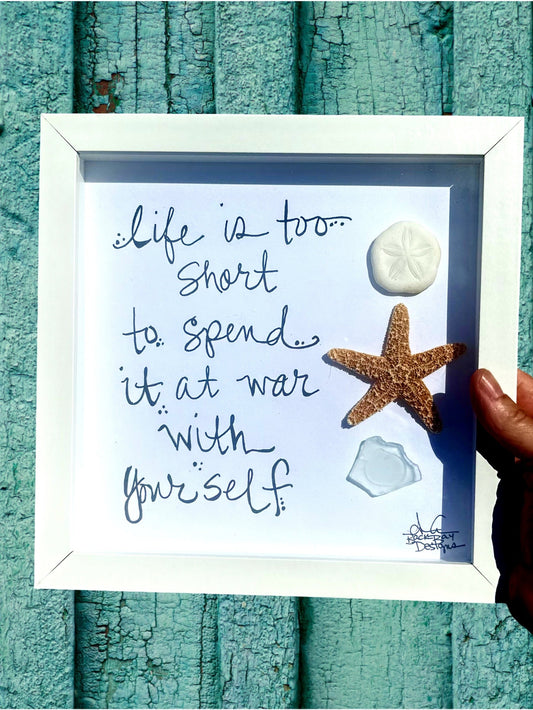 life is too
short
to spend
it at war
with
yourself
Back Bay
Designs